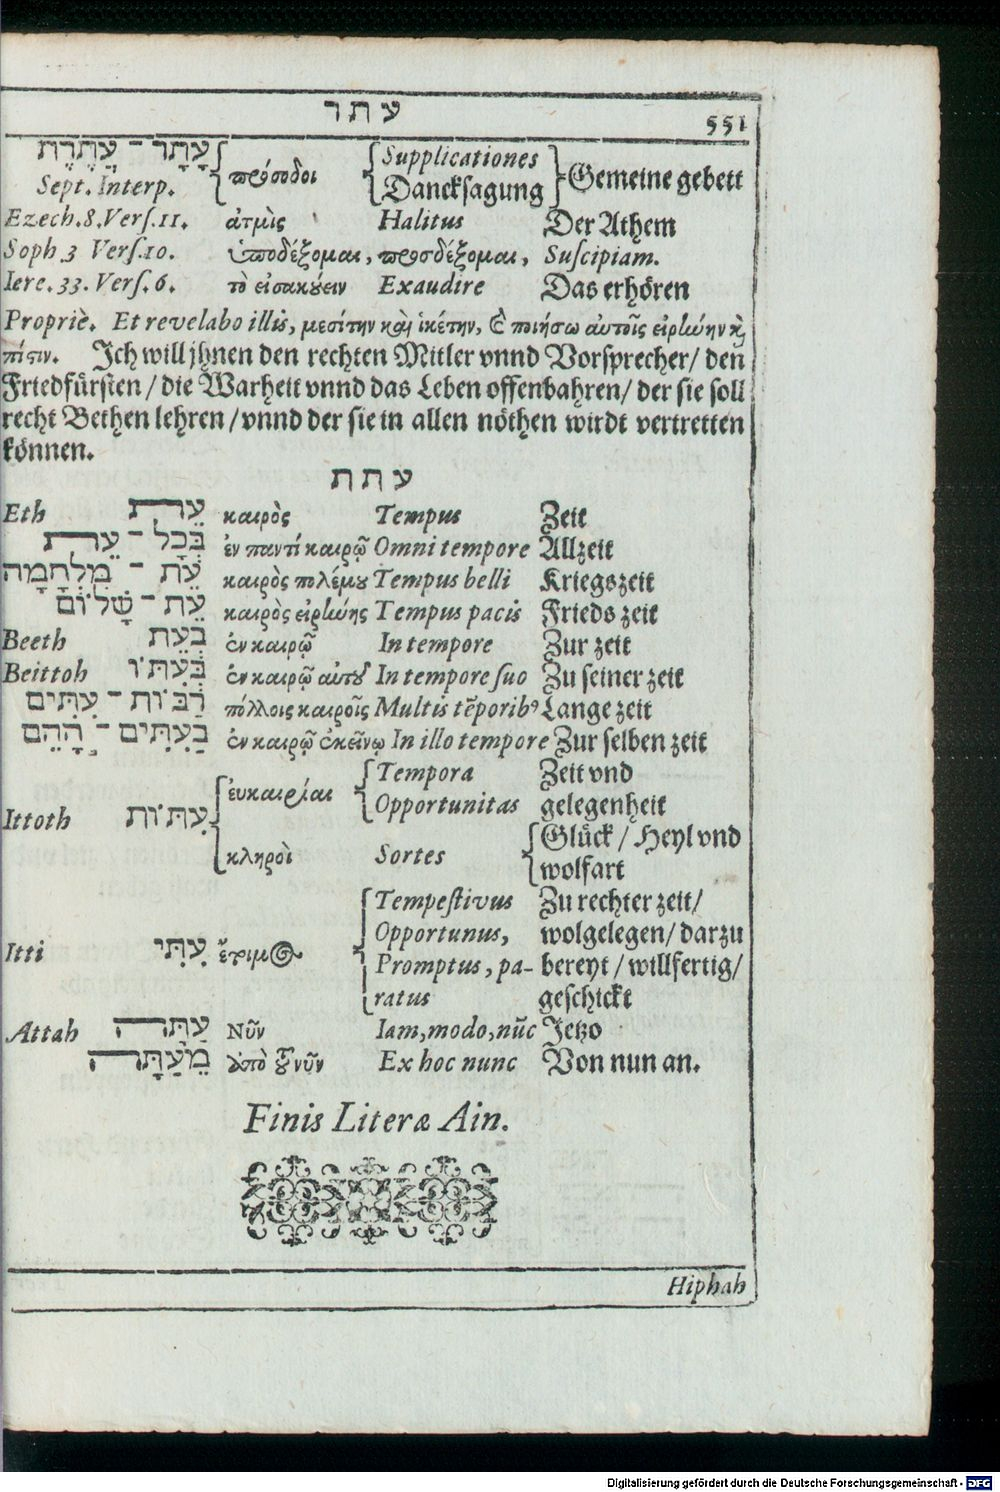 עתר
551
עָתָר - עֲתֶרֶת πρόσοδοι Supplicationes Gemeine gebett
Sept. Interp. Dancksagung
Ezech. 8. Verſ. 11. ἀτμὶς Halitus Der Athem
Soph 3 Verſ. 10. ὑποδέξομαι, προσδέξομαι, Suſcipiam.
Iere. 33. Verſ. 6. τὸ εἰσακούειν Exaudire Das erhören
Propriè. Et revelabo illis, μεσίτην καὶ ἱκέτην, & ποιήσω αὐτοῖς εἰρήνην καὶ
πίστιν. Ich will jhnen den rechten Mitler vnnd Vorsprecher/ den
Friedfürsten / die Warheit vnnd das Leben offenbahren/ der sie soll
recht Bethen lehren / vnnd der sie in allen nöthen wirdt vertretten
können.
עתת
Eth עֵת καιρὸς Tempus Zeit
בְּכָל - עֵת ἐν παντί καιρῷ Omni tempore Allzeit
עֵת - מִלְחָמָה καιρὸς πολέμου Tempus belli Kriegszeit
עֵת - שָׁלוֹם καιρὸς εἰρήνης Tempus pacis Frieds zeit
Beeth בְּעֵת ἐν καιρῷ In tempore Zur zeit
Beittoh בְּעִתּוֹ ἐν καιρῷ αὐτοῦ In tempore ſuo Zu seiner zeit
רַבּוֹת - עִתִּים πόλλοις καιροῖς Multis tẽporibꝰ Lange zeit
בָּעִתִּים - הָהֵם ἐν καιρῷ ἐκεῖνῳ In illo tempore Zur selben zeit
Tempora Zeit vnd
εὐκαιρίαι Opportunitas gelegenheit
Ittoth עִתּוֹת
Glück / Heyl vnd
κληροὶ Sortes wolfart
Tempeſtivus Zu rechter zeit/
Opportunus, wolgelegen/ darzu
Itti עִתִּי ἕτοιμος Promptus, pa- bereyt / willfertig/
ratus geschickt
Attah עַתָּה Νῦν Iam, modo, nũc Jetzo
מֵעַתָּה ἀπὸ τοῦ νῦν Ex hoc nunc Von nun an.
Finis Literæ Ain.
Hiphah
Digitalisierung gefördert durch die Deutsche Forschungsgemeinschaft - DFG